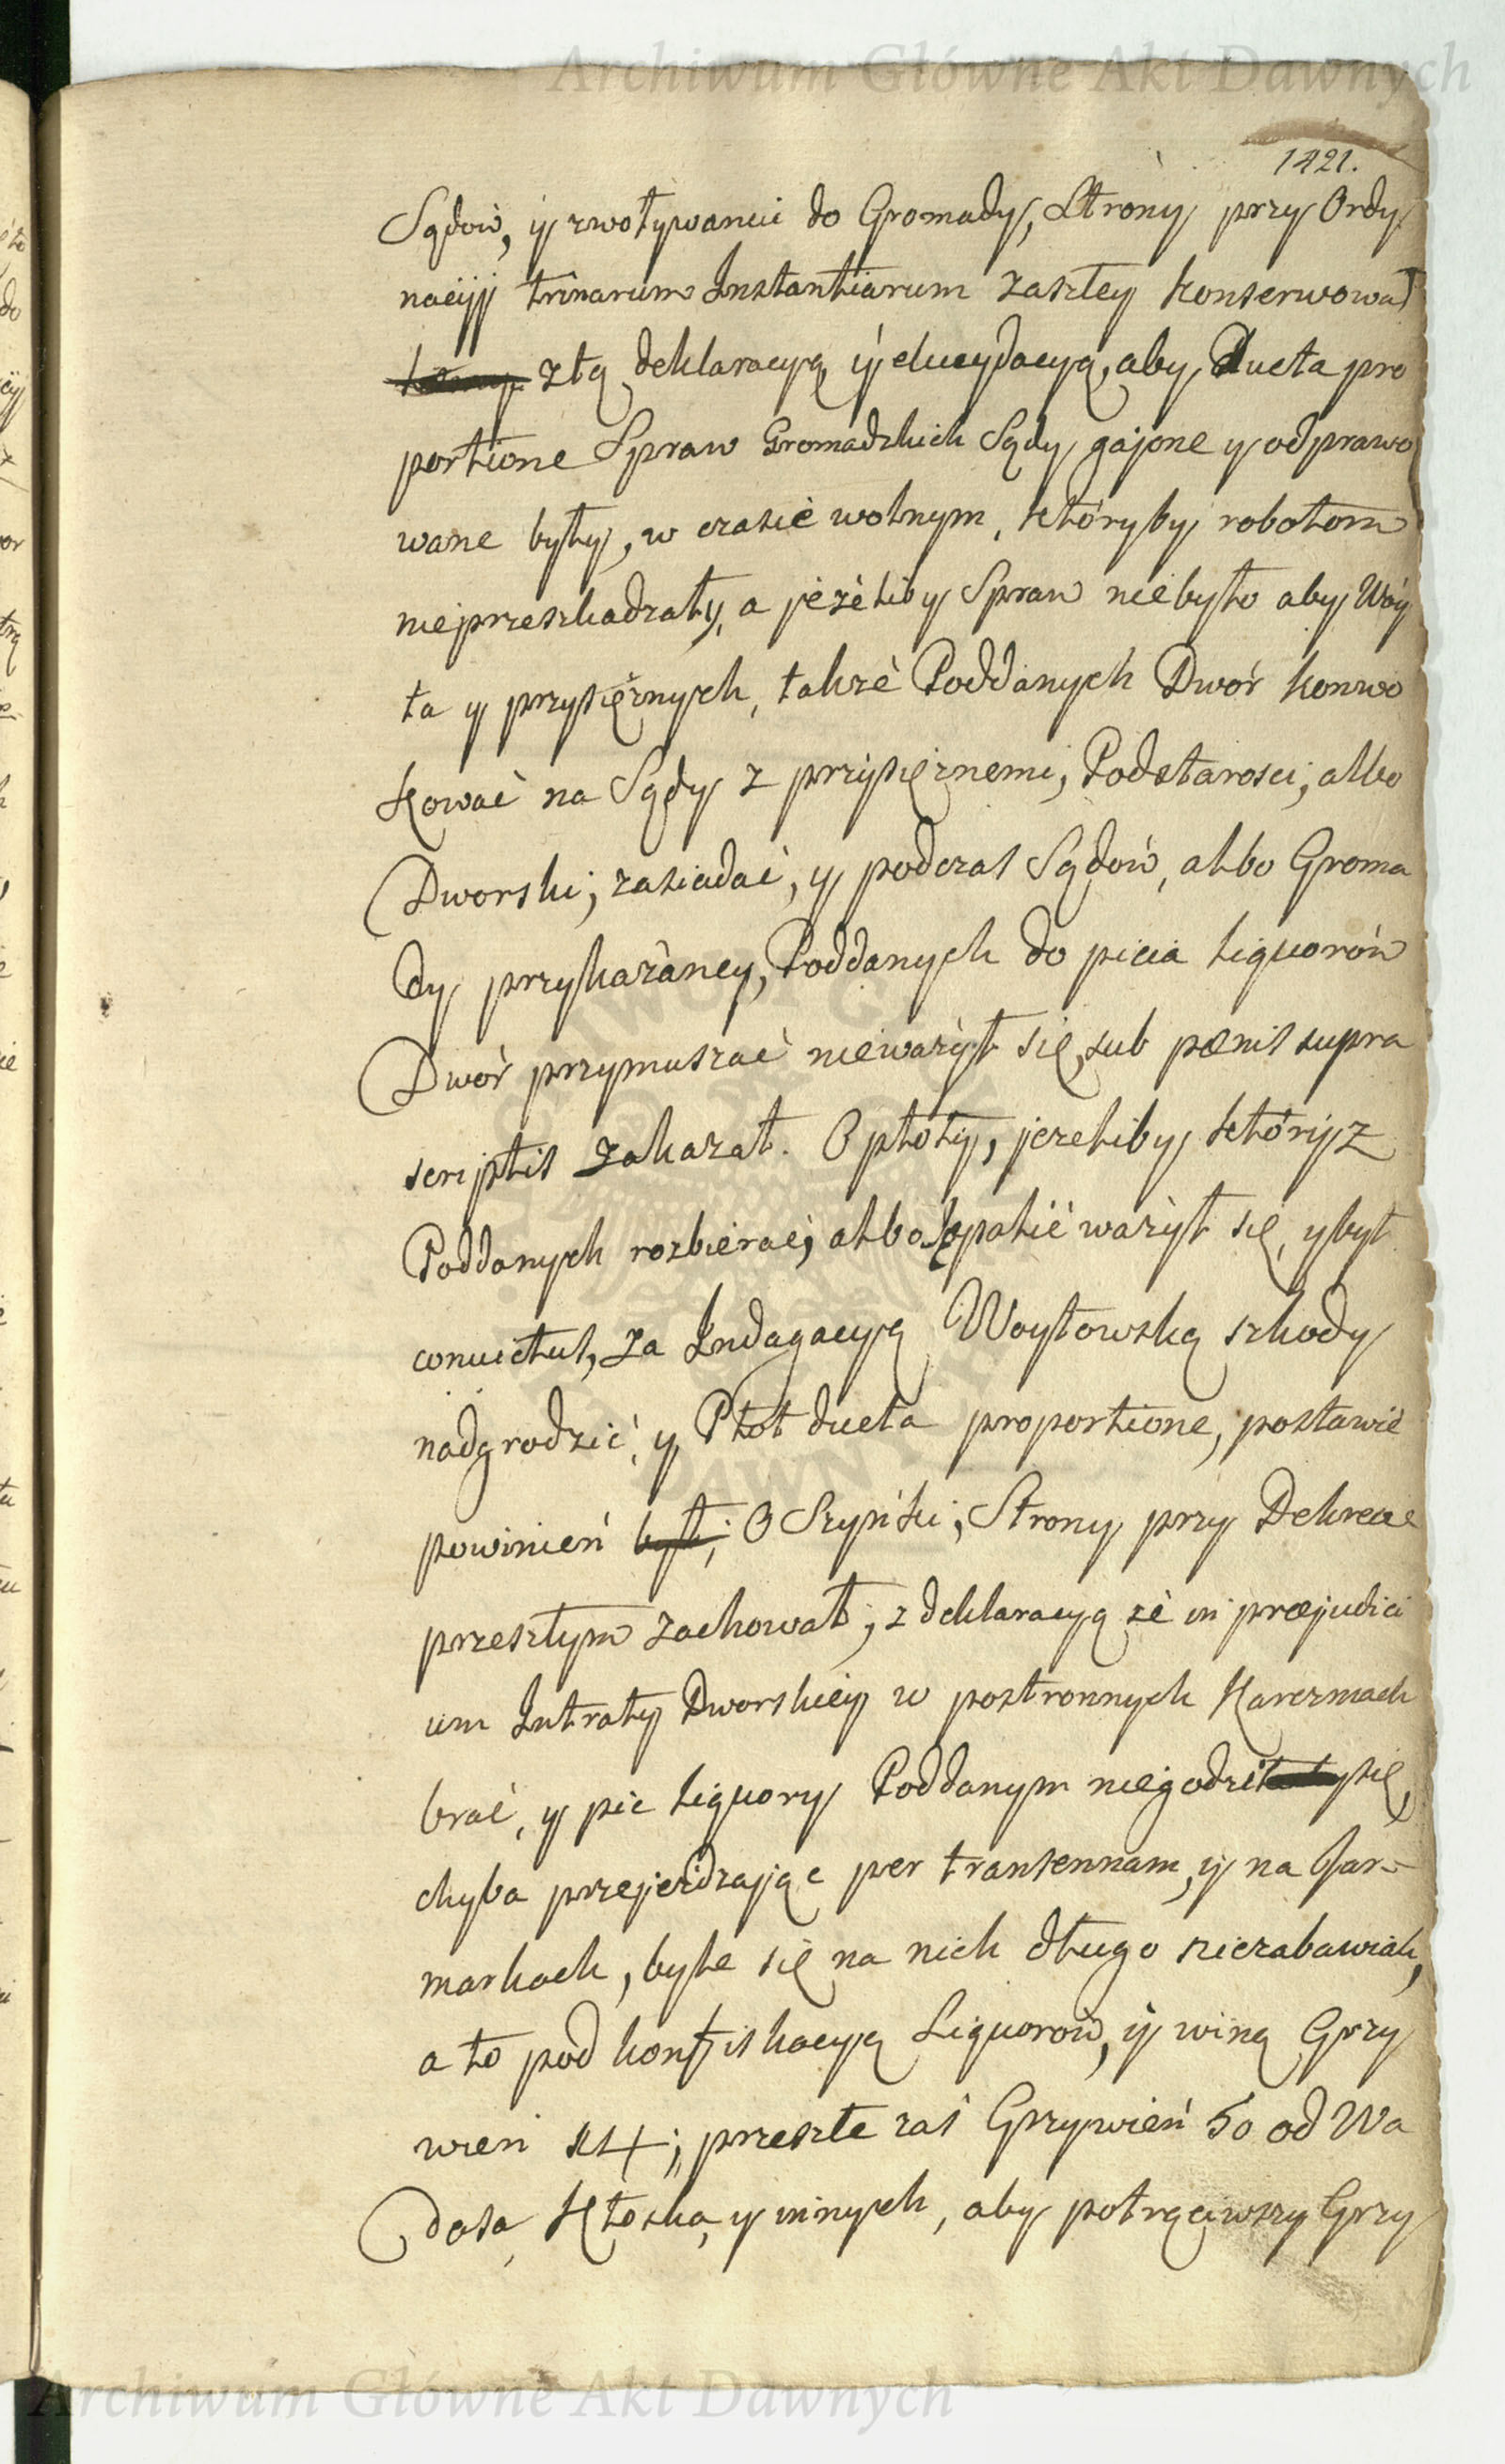 Archiwum Główne Akt Dawnych
1421.
Sądów, y zwoływaniu do Gromady, Strony przy Ordy
nacyy trinarum Instantiarum zaszłey konserwował
z tą deklaracyą y elucydacyą, aby ducta pro
portione Spraw Gromadzkich Sądy gajone y odprawo
wane były, w czasie wolnym, któryby robotom
nieprzeszkadzały, a jeżeliby Spraw niebyło aby Wóy
ta y przysiężnych, także Poddanych Dwór konwo
kować na Sądy z przysiężnemi, Podstarosci, albo
Dworski, zasiadać, y podczas Sądów, albo Groma
dy przykazaney, Poddanych do picia liquorów
Dwór przymuszać nieważył się, sub pœnis supra
scriptis zakazał. O płoty, jezeliby któryz
Poddanych rozbierać, albo palić ważył się, y był
convictus, za Indagacyą Woytowską szkody
nadgrodzić, y Płot ducta proportione, postawić
powinień był; O Szynki, Strony przy Dekrecie
przeszłym zachował, z deklaracyą że in præjudici
um Intraty Dworskiey w postronnych Karczmach
brać, y pic liquory Poddanym niegodzi się,
chyba przejeżdzając per transennam, y na Jar-
markach, byle się na nich długo niezabawiali,
a to pod konfiskacyą Liquorow, y winą Grzy
wien XX; przeszłe zaś Grzywień 50 od Wa
dasa, Kłoska, y innych, aby potrąciwszy Grzy
Archiwum Główne Akt Dawnych